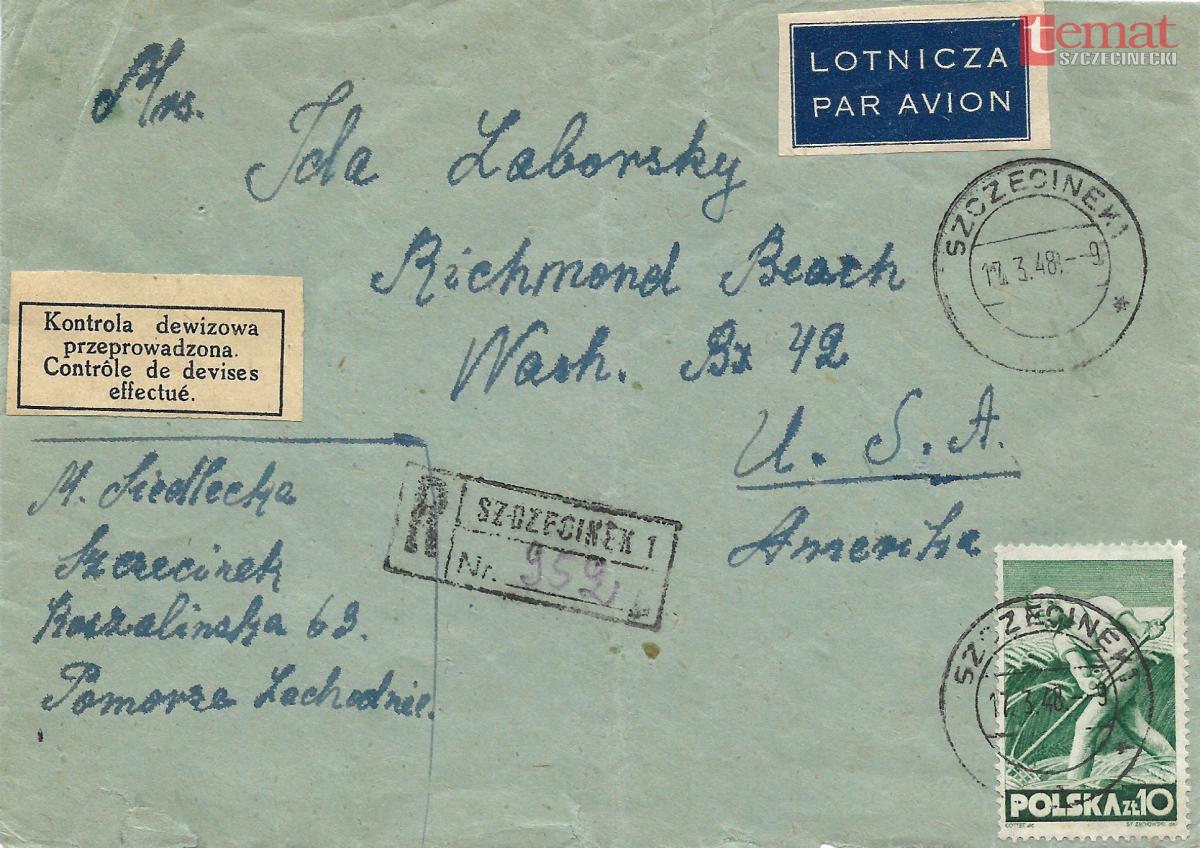 temat
SZCZECINECKI
LOTNICZA
PAR AVION
Mrs.
Ida Laborsky
Richmond Beach
Wash. Bx 42
U. S. A.
Amerika
SZCZECINEK 1
17. 3.48. - 9
Kontrola dewizowa
przeprowadzona.
Contrôle de devises
effectué.
M. Siedlecka
Szczecinek
Koszalinska 63.
Pomorze Zachodnie.
R
SZCZECINEK 1
Nr. 959
SZCZECINEK 1
17. 3.48. - 9
POLSKA ZŁ 10